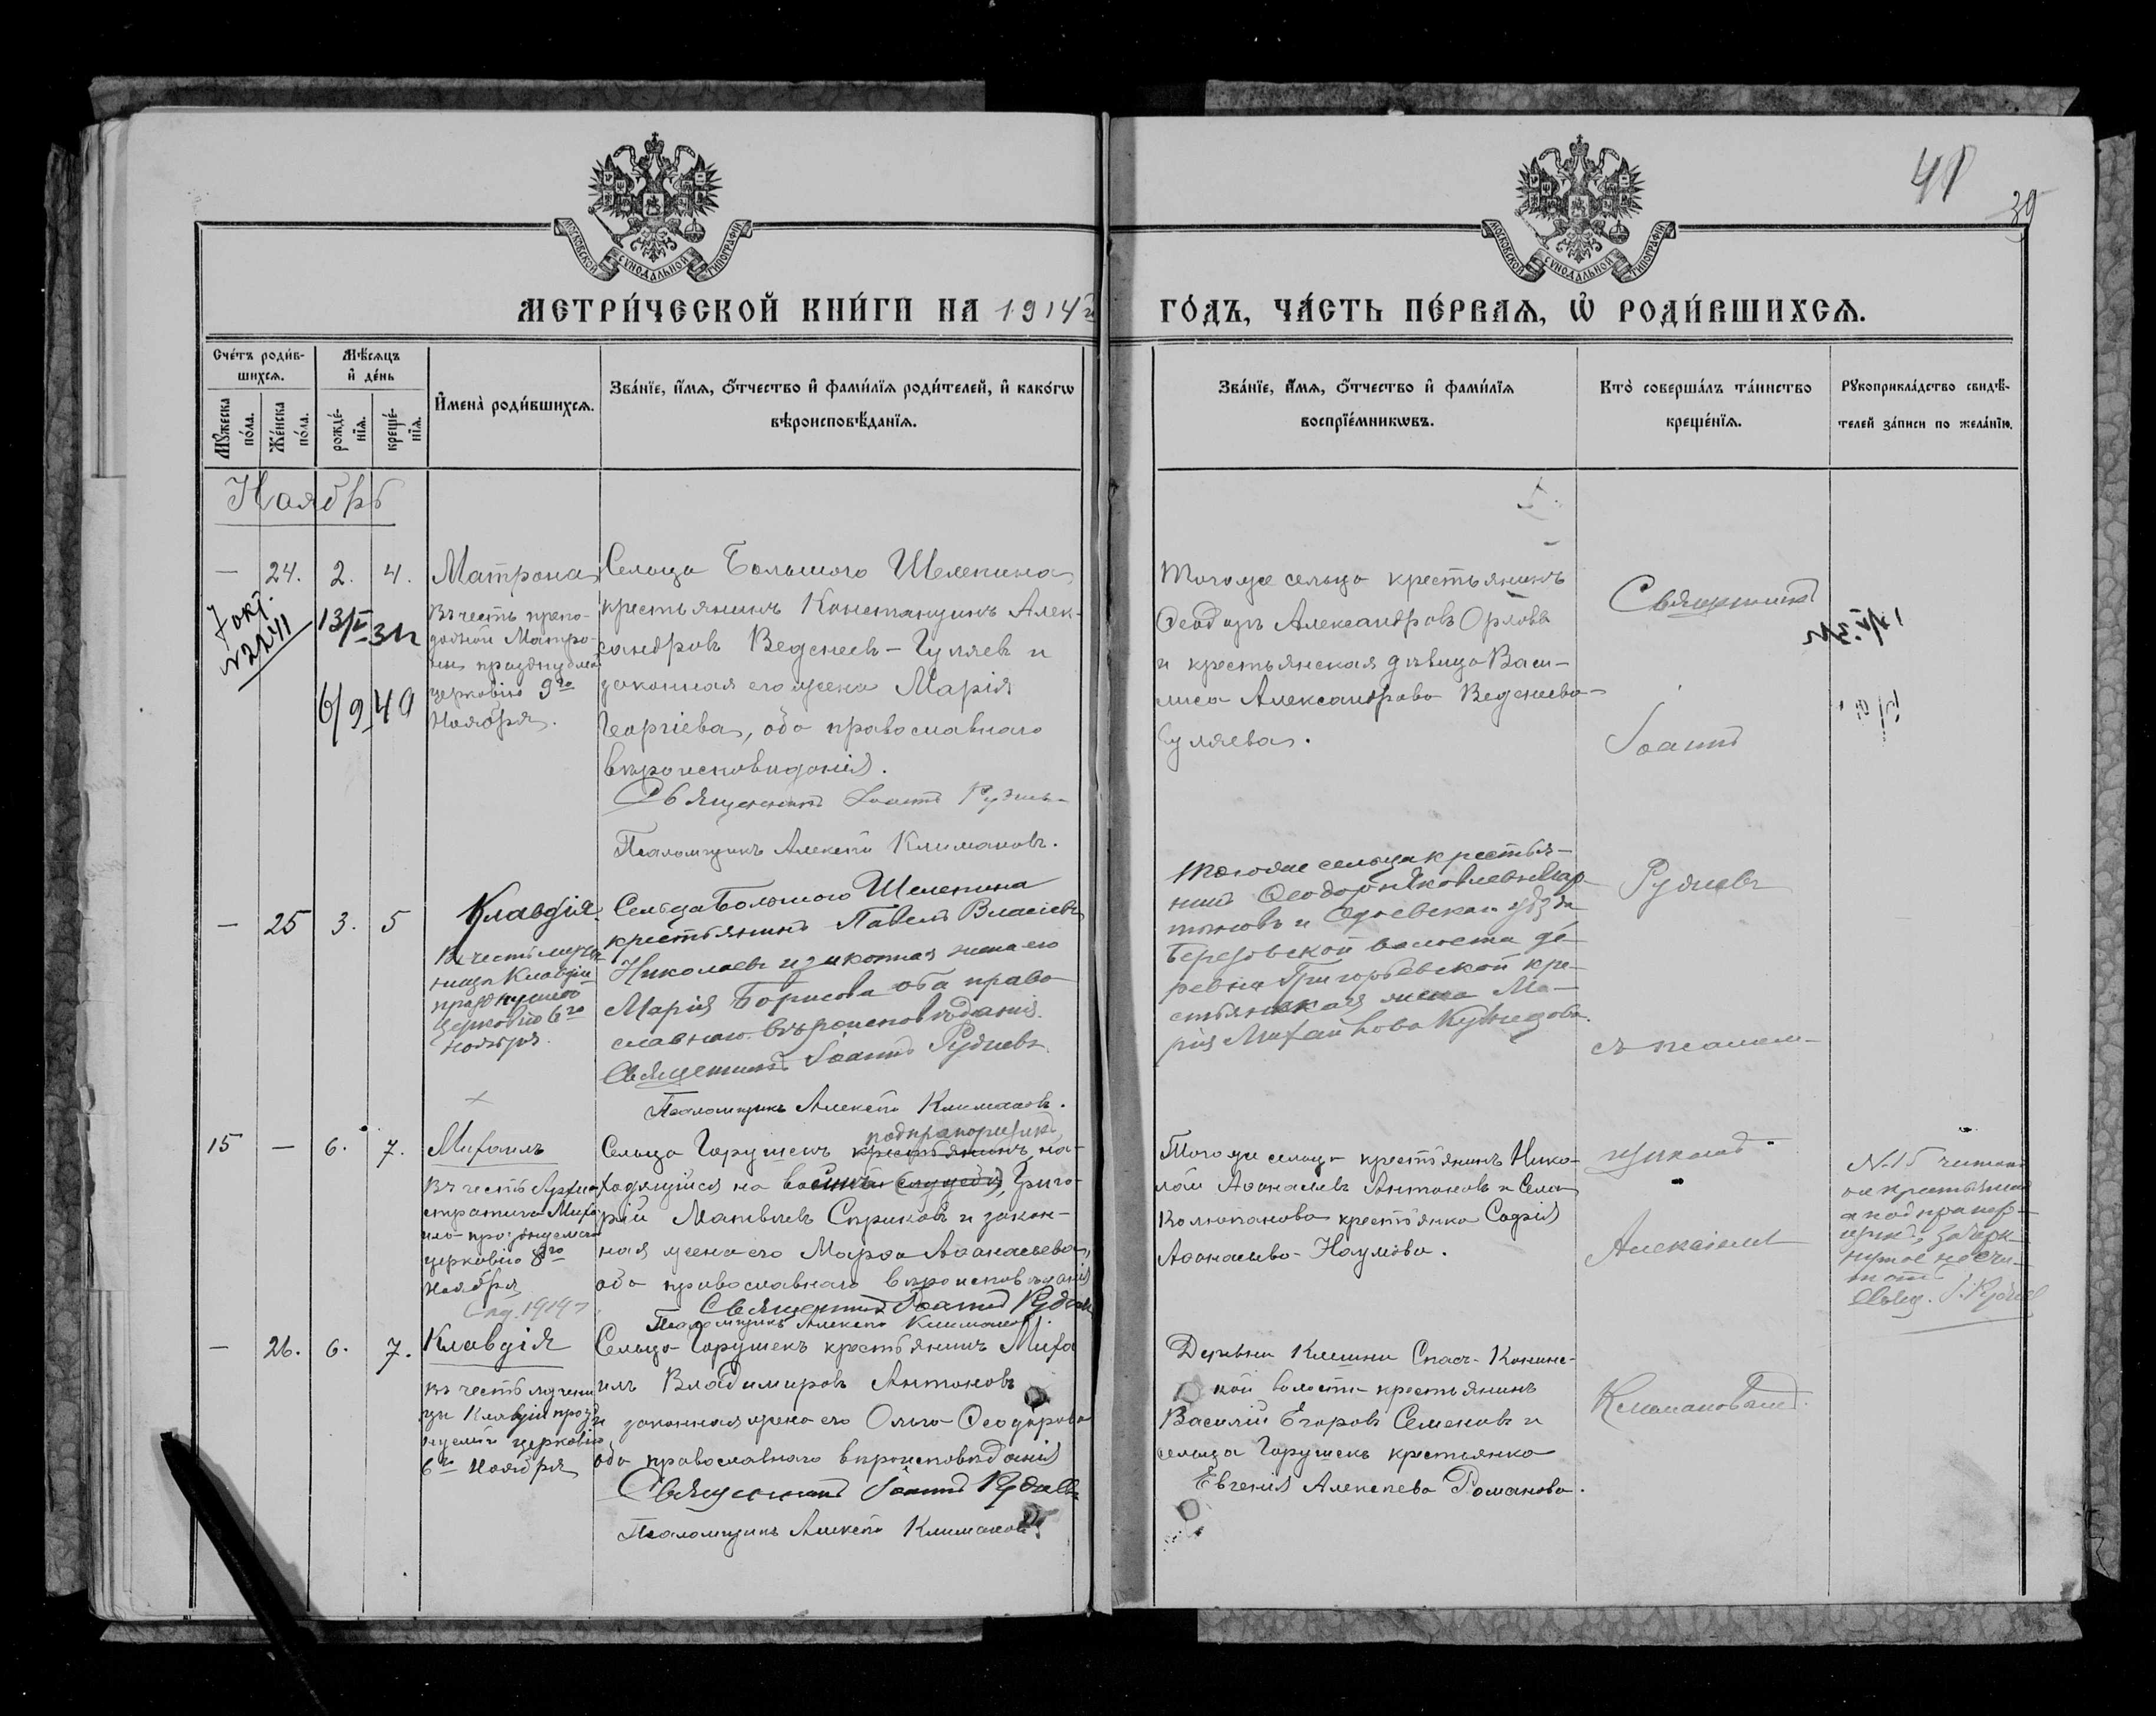 41
39
МОСКОВСКОЙ СѴНОДАЛЬНОЙ ТИПОГРАФІИ
МОСКОВСКОЙ СѴНОДАЛЬНОЙ ТИПОГРАФІИ
МЕТРИ́ЧЕСКОЙ КНИ́ГИ НА 1914й
ГО́ДЪ, ЧА́СТЬ ПЕ́РВАѦ, Ѡ҆ РОДИ́ВШИХСѦ.
Сче́тъ роди́в-
шихсѧ.
Мꙋ́жеска по́ла.
Же́нска по́ла.
Мѣ́сѧцъ
и҆ де́нь
рожде́-
нїѧ.
креще́-
нїѧ.
И҆мена̀ роди́вшихсѧ.
Зва́нїе, и҆́мѧ, ѻ҆́тчество и҆ фами́лїѧ роди́телей, и҆ како́гѡ
вѣроисповѣ́данїѧ.
Зва́нїе, и҆́мѧ, ѻ҆́тчество и҆ фами́лїѧ
воспрїе́мникѡвъ.
Кто̀ соверша́лъ та́инство
креще́нїѧ.
Рꙋкоприкла́дство свидѣ́-
телей за́писи по жела́нїю.
Ноябрь
— 24. 2. 4. Матрона
Въ честь препо-
добной Матро-
ны празднуемой
церковію 9го
Ноября.
7 окт.
N 2241
13/V
6/9 40
Сельца Большого Шелепина
крестьянинъ Константинъ Алек-
сандровъ Веденеев-Гуляев и
законная его жена Марія
Георгіева, оба православнаго
вѣроисповѣданія.
Священникъ Іоаннъ Руднев
Псаломщикъ Алексѣй Климановъ.
Того же сельца крестьянинъ
Ѳеодоръ Александровъ Орловъ
и крестьянская дѣвица Васи-
лиса Александрова Веденеева-
Гуляева.
Священникъ
Іоаннъ
Рудневъ
съ псалом-
щикомъ
Алексіемъ
Климановымъ.
— 25 3. 5 Клавдія
Въ честь мучен-
ицы Клавдіи
празднуемой
церковію 6го
ноября.
Сельца Большого Шелепина
крестьянинъ Павелъ Власіевъ
Николаевъ и законная жена его
Марія Борисова оба право
славнаго вѣроисповѣданія.
Священникъ Іоаннъ Рудневъ.
Псаломщикъ Алексѣй Климановъ.
Того же сельца крестья-
нинъ Ѳеодоръ Яковлевъ
и уѣзда
Березовской волости де-
ревни Григорьевской кре-
стьянская жена Ма-
рія Михайлова Кузнецова.
15 — 6. 7. Михаилъ
Въ честь Архи-
стратига Миха-
ила празднуемаго
церковію 8го
Ноября
подпрапорщикъ
Сельца Горушекъ крестьянинъ, на-
ходящійся на военной службѣ, Григо-
рій Матвѣевъ Спириковъ и закон-
ная жена его Марѳа Аѳанасьева,
оба православнаго вѣроисповѣданія
Священникъ Іоаннъ Руднев
Псаломщикъ Алексѣй Климановъ.
Того же сельца крестьянинъ Нико-
лай Аѳанасьевъ Антоновъ и Села
Колюпанова крестьянка Софія
Аѳанасьева Наумова.
№ 15 читать
не крестьянинъ
а подпрапор-
щикъ, зачерк-
нутое не чи-
тать
Свящ. І. Руднев
— 26. 6. 7. Клавдія
въ честь мучени
цы Клавдіи празд
нуемой церковію
6го Ноября
Сельца Горушекъ крестьянинъ Миха
илъ Владимировъ Антоновъ
и законная жена его Ольга Ѳеодорова
оба православнаго вѣроисповѣданія
Священникъ Іоаннъ Рудневъ
Псаломщикъ Алексѣй Климановъ
Деревни Клешни Спас-Конинс-
кой волости крестьянинъ
Василій Егоровъ Семеновъ и
сельца Горушекъ крестьянка
Евгенія Алексѣева Романова.